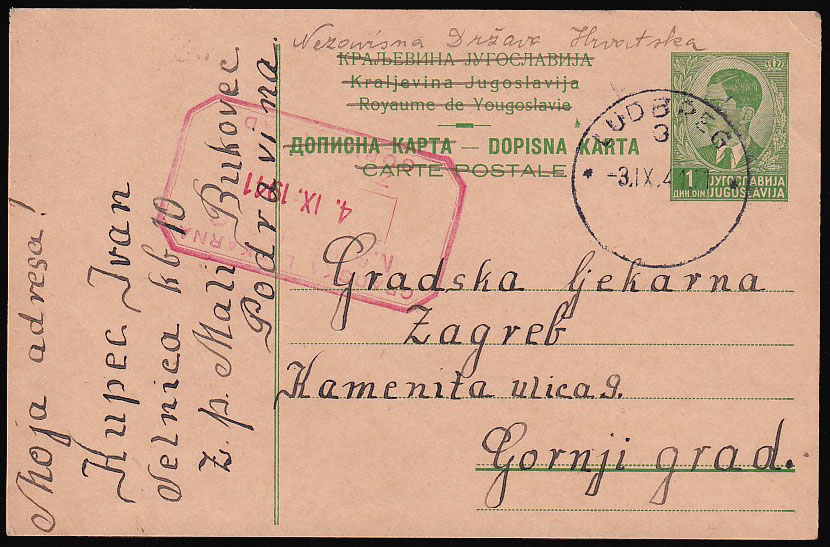 Nezavisna Država Hrvatska
КРАЉЕВИНА ЈУГОСЛАВИЈА
Kraljevina Jugoslavija
Royaume de Yougoslavie
ДОПИСНА КАРТА — DOPISNA KARTA
CARTE POSTALE
LUDBREG
3
-3.IX.41
1 ЈУГОСЛАВИЈА
ДИН. DIN JUGOSLAVIJA
4. IX. 1941
Gradska ljekarna
Zagreb
Kamenita ulica 9.
Gornji grad.
Moja adresa!
Kupec Ivan
Selnica kb 10
z. p. Mali Bukovec
Podravina